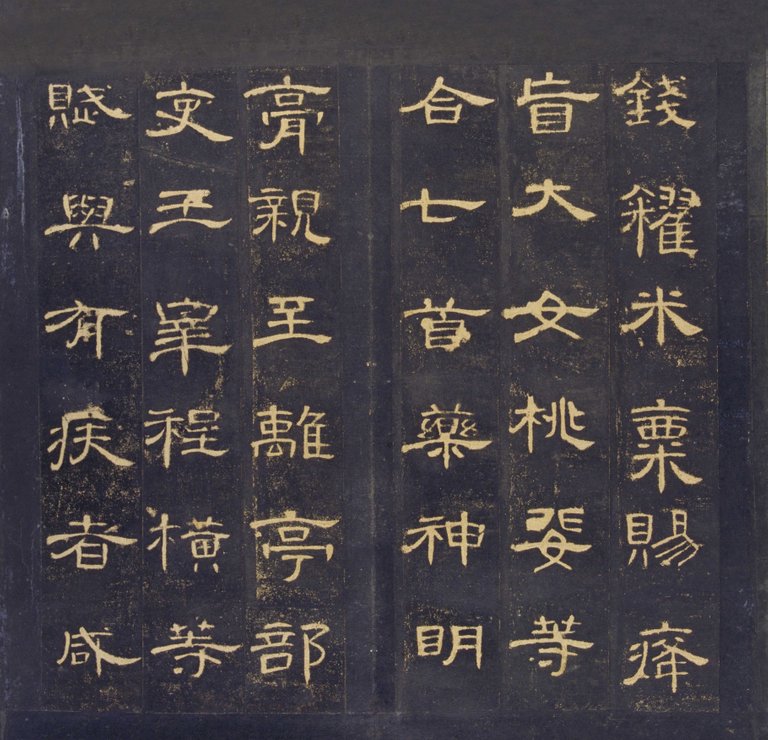 錢糴米粟賜癃
盲大女桃婓等
合七首藥神明
膏親至離亭部
吏王皐程橫等
賦與有疾者咸